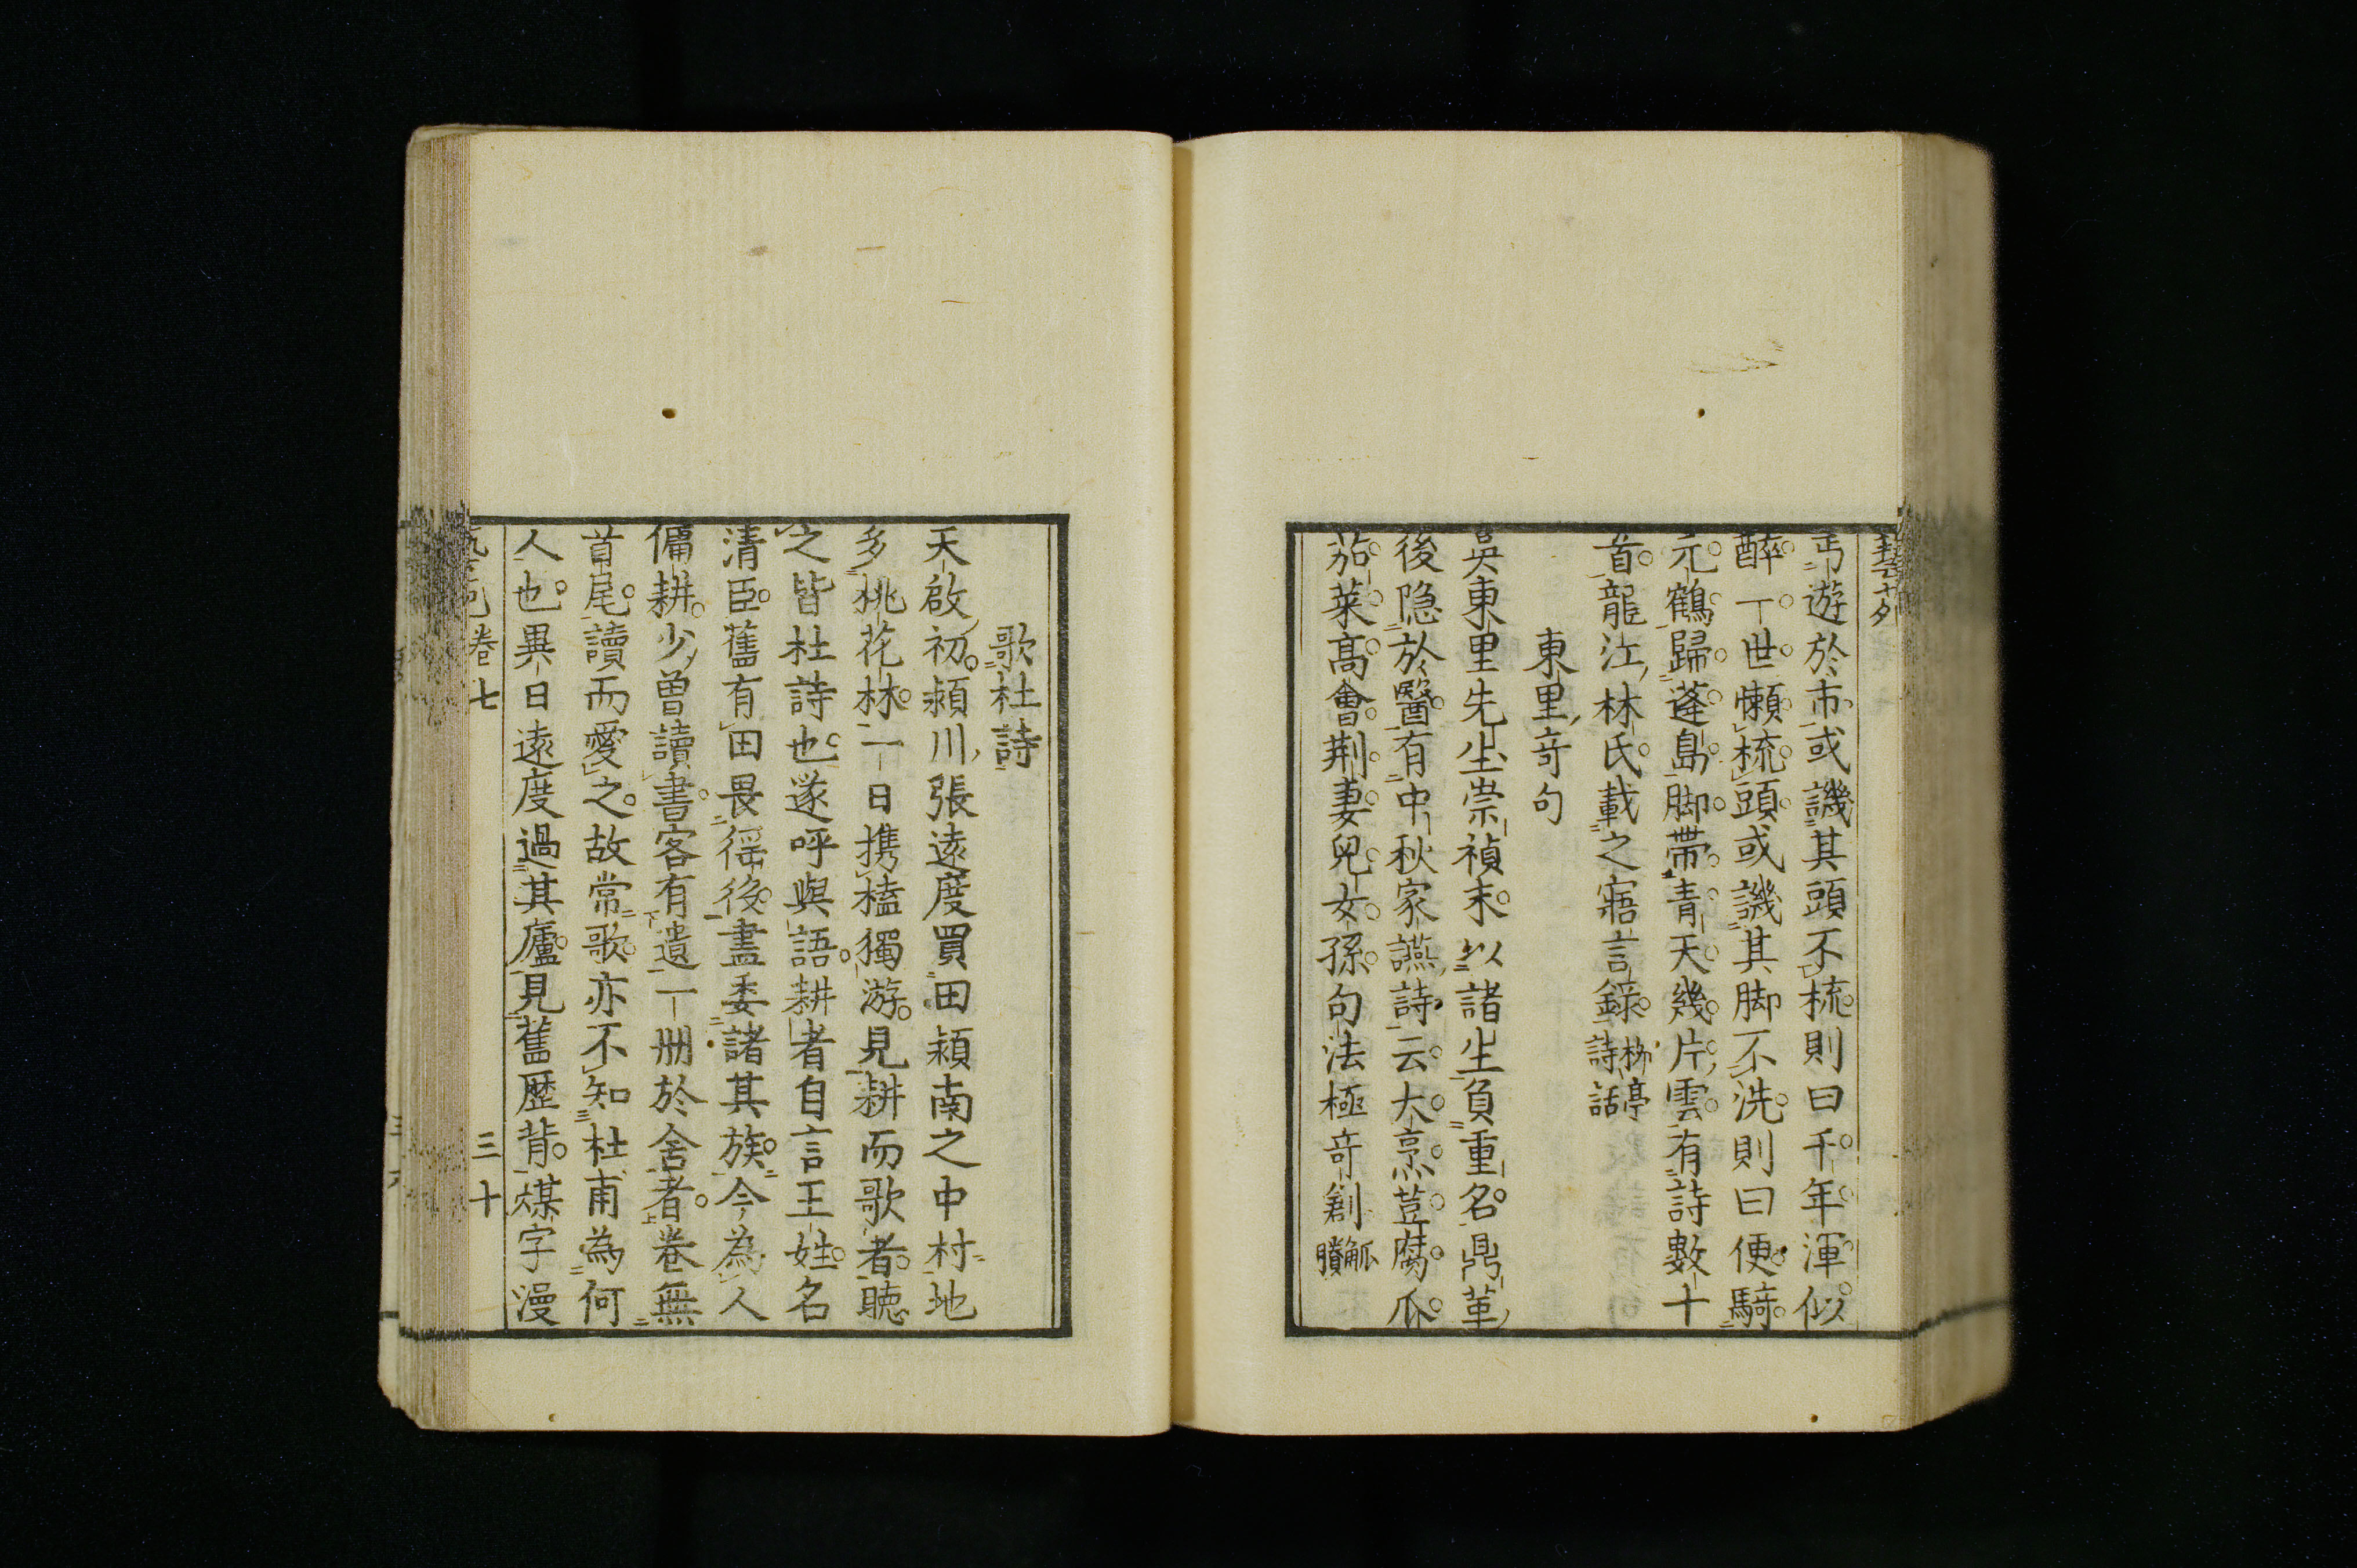 丐遊於市或譏其頭不梳則曰千年渾似
醉一世懶梳頭或譏其脚不洗則曰便騎
元鶴歸蓬島脚帶青天幾片雲有詩數十
首龍江林氏載之寤言錄柳亭詩話
東里竒句
吳東里先生崇禎末以諸生負重名鼎革
後隐於醫有中秋家讌詩云大烹荳腐瓜
茄菜髙會荆妻兒女孫句法極竒剏觚賸
歌杜詩
天啟初潁川張遠度買田潁南之中村地
多桃花林一日携榼獨游見耕而歌者聴
之皆杜詩也遂呼與語耕者自言王姓名
清臣舊有田畏徭後盡委諸其族今為人
傭耕少曽讀書客有遺一冊於舍者卷無
首尾讀而愛之故常歌亦不知杜甫為何
人也異日遠度過其廬見舊歷背煤字漫
卷七
三十